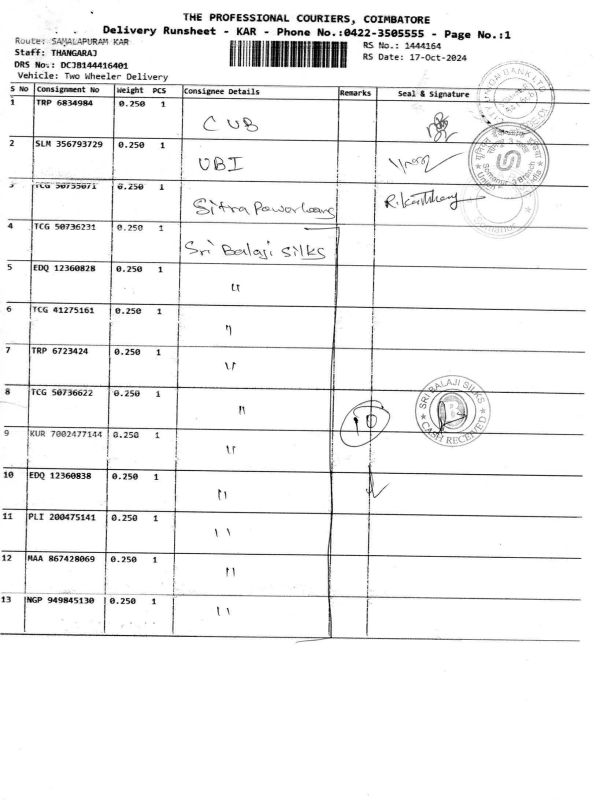 THE PROFESSIONAL COURIERS, COIMBATORE
Delivery Runsheet - KAR - Phone No.:0422-3505555 - Page No.:1
Route: SAMALAPURAM KAR
Staff: THANGARAJ
DRS No.: DCJB144416401
Vehicle: Two Wheeler Delivery
RS No.: 1444164
RS Date: 17-Oct-2024
S No Consignment No Weight PCS Consignee Details Remarks Seal & Signature
1 TRP 6834984 0.250 1 CUB
2 SLM 356793729 0.250 1 UBI
3 TCG 50735071 0.250 1 Sitra Powerloom R. Karthikeny
4 TCG 50736231 0.250 1 Sri Balaji Silks
5 EDQ 12360828 0.250 1 "
6 TCG 41275161 0.250 1 "
7 TRP 6723424 0.250 1 "
8 TCG 50736622 0.250 1 " 10 SRI BALAJI SILKS CASH RECEIVED
9 KUR 7002477144 0.250 1 "
10 EDQ 12360838 0.250 1 "
11 PLI 200475141 0.250 1 "
12 MAA 867428069 0.250 1 "
13 NGP 949845130 0.250 1 "